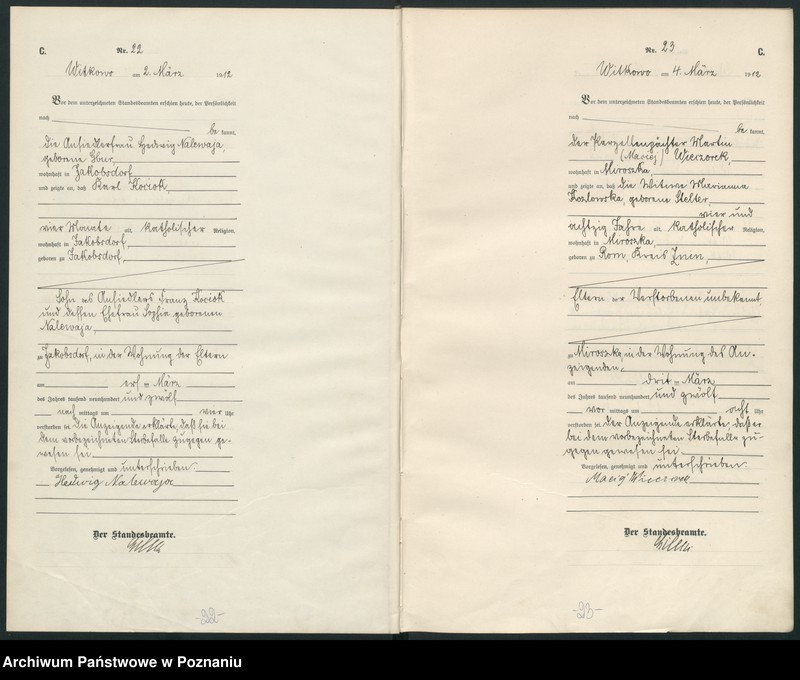 C.
Nr. 22
Witkowo am 2. März 1912
Vor dem unterzeichneten Standesbeamten erschien heute, der Persönlichkeit
nach
be kannt,
die Ansiedlerfrau Hedwig Nalewaja,
geborene
wohnhaft in Jakobsdorf
und zeigte an, daß Karl Kociok,
vier Monate alt, katholischer Religion,
wohnhaft in Jakobsdorf,
geboren zu Jakobsdorf,
Sohn des Ansiedlers Franz Kociok
und dessen Ehefrau Sophia geborenen
Nalewaja,
zu Jakobsdorf, in der Wohnung der Eltern
am erst en März
des Jahres tausend neunhundert und zwölf
nach mittags um vier Uhr
verstorben sei. Die Anzeigende erklärte, daß sie bei
dem vorbezeichneten Sterbefalle zugegen ge-
wesen sei.
Vorgelesen, genehmigt und unterschrieben
Hedwig Nalewaja
Der Standesbeamte.
-22-
Nr. 23
C.
Witkowo am 4. März 1912
Vor dem unterzeichneten Standesbeamten erschien heute, der Persönlichkeit
nach
be kannt,
der Parzellenpächter Martin
(Maciej) Wieczorek,
wohnhaft in Miroszka
und zeigte an, daß die Witwe Marianna
Kozlowska, geborene Stelter,
vier und
achtzig Jahre alt, katholischer Religion,
wohnhaft in Miroszka,
geboren zu Rom, Kreis Znin,
Eltern der Verstorbenen unbekannt,
zu Miroszka, in der Wohnung des An-
zeigenden,
am dritt en März
des Jahres tausend neunhundert und zwölf
vor mittags um acht Uhr
verstorben sei. Der Anzeigende erklärte, daß er
bei dem vorbezeichneten Sterbefalle zu-
gegen gewesen sei
Vorgelesen, genehmigt und unterschrieben
Maciej Wieczorek
Der Standesbeamte.
-23-
Archiwum Państwowe w Poznaniu